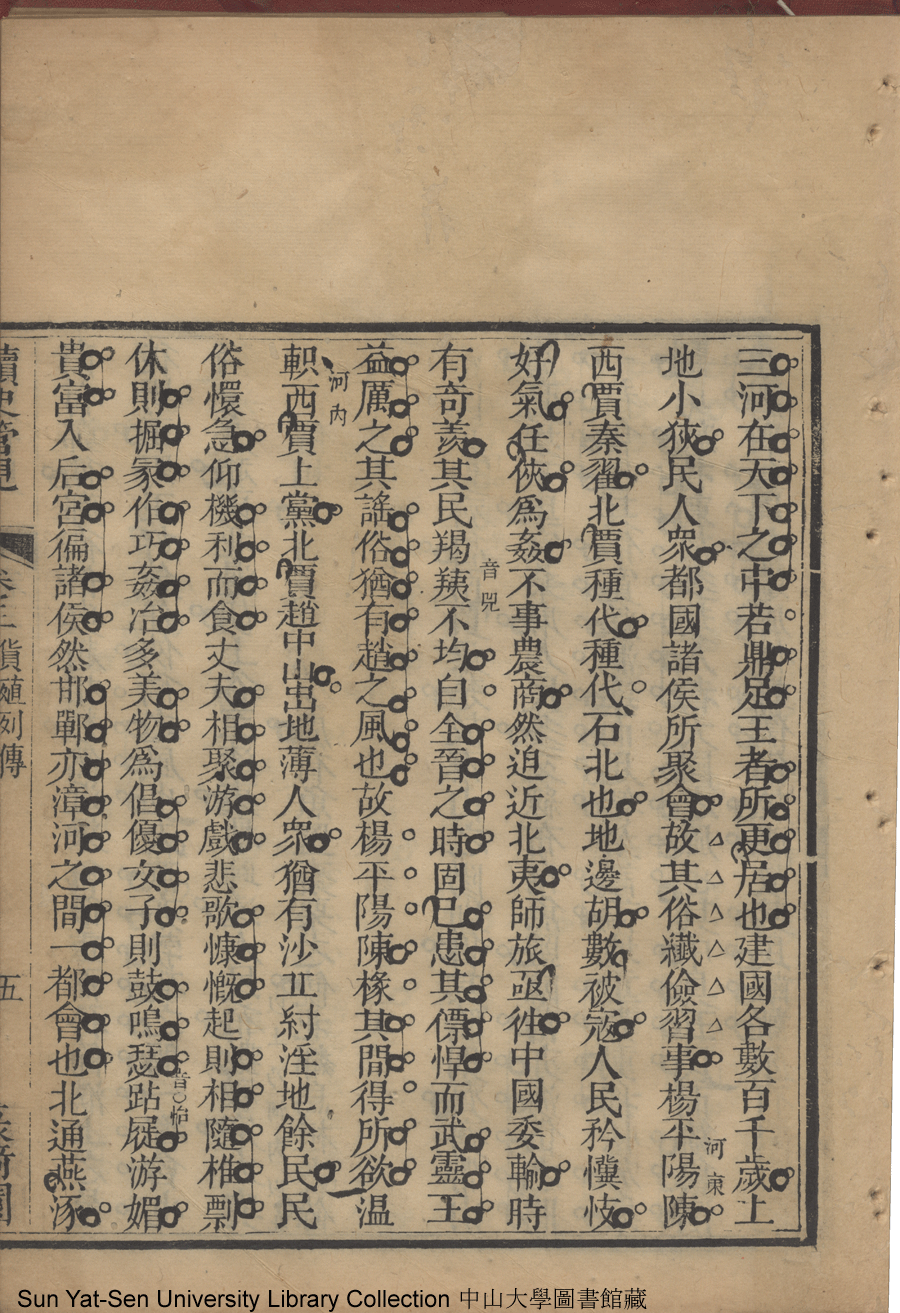 三河在天下之中若鼎足王者所更居也建國各數百千歲土
地小狹民人衆都國諸侯所聚會故其俗纖儉習事楊平陽陳
河東
西賈秦翟北賈種代種代石北也地邊胡數被寇人民矜懻忮
好氣任俠爲姦不事農商然迫近北夷師旅亟徃中國委輸時
音兕
有奇羨其民羯羠不均自全晉之時固已患其僄悍而武靈王
益厲之其謠俗猶有趙之風也故楊平陽陳椽其間得所欲溫
河內
軹西賈上黨北賈趙中山中山地薄人衆猶有沙丘紂淫地餘民民
俗懁急仰機利而食丈夫相聚游戲悲歌慷慨起則相隨椎剽
休則掘冢作巧姦冶多美物爲倡優女子則鼓鳴瑟跕屣游媚
貴富入后宮徧諸侯然邯鄲亦漳河之間一都會也北通燕涿
讀史管見
貨殖列傳
五
Sun Yat-Sen University Library Collection 中山大學圖書館藏